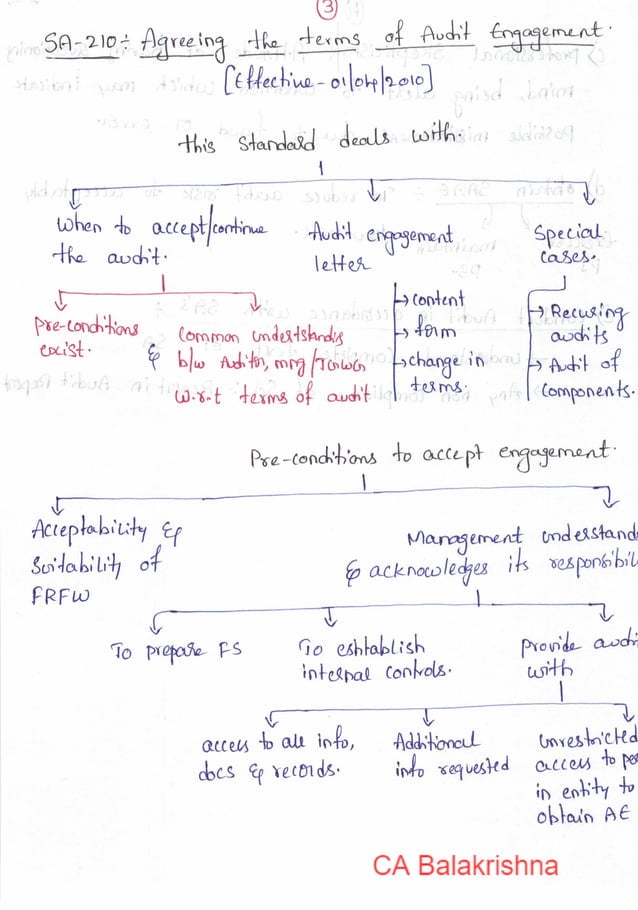 3
SA-210÷ Agreeing the terms of Audit Engagement.
[Effective - 01/04/2010]
this standard deals with
When to accept/continue
the audit.
Audit engagement
letter
Special
cases.
Pre-conditions
exist.
&
Common understanding
b/w Auditor, mng/TCWG
w.r.t terms of audit
content
form
change in
terms.
Recuring
audits
Audit of
components.
Pre-conditions to accept engagement.
Acceptability &
Suitability of
FRFW
Management understand
& acknowledges its responsibil
To prepare FS
To eshtablish
internal controls.
provide audi
with
access to all info,
docs & records.
Additional
info requested
Unrestricted
access to pe
in entity to
obtain AE
CA Balakrishna